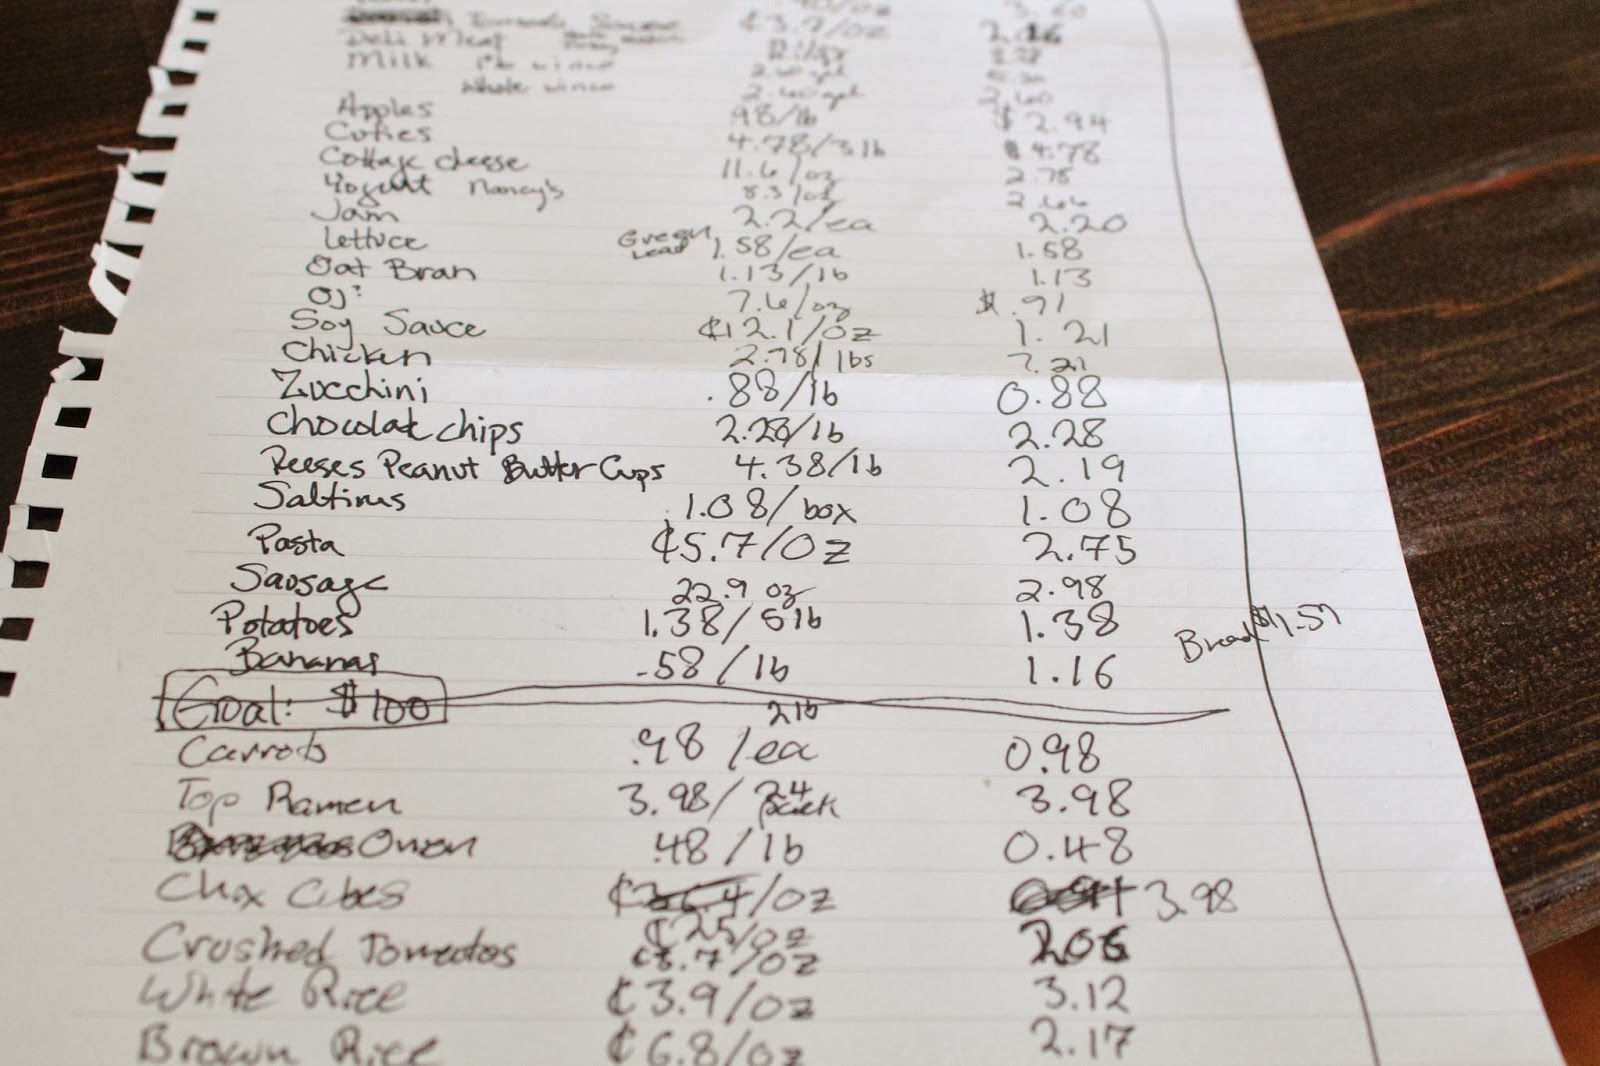 Tomato Sauce ¢3.7/oz 2.16
Deli Meat
Milk
Whole winco 2.60
Apples 98/lb $2.94
Cuties 4.78/3lb $4.78
Cottage cheese 11.6/oz 2.78
Yogurt Nancy's 8.3/oz 2.66
Jam 2.2/ea 2.20
Lettuce Green Leaf 1.58/ea 1.58
Oat Bran 1.13/lb 1.13
OJ: 7.6/oz $.91
Soy Sauce ¢12.1/oz 1.21
Chicken 2.78/lbs 7.21
Zucchini .88/lb 0.88
Chocolate chips 2.28/lb 2.28
Reeses Peanut Butter Cups 4.38/lb 2.19
Saltines 1.08/box 1.08
Pasta ¢5.7/oz 2.75
Sausage 22.9 oz 2.98
Potatoes 1.38/5lb 1.38 Bread $1.57
Bananas .58/lb 1.16
Goal: $100 2lb
Carrots .98/ea 0.98
Top Ramen 3.98/24 pack 3.98
Onion .48/lb 0.48
Chix Cubes /oz 3.98
¢25/oz
Crushed Tomatoes /oz 2.06
White Rice ¢3.9/oz 3.12
Brown Rice ¢6.8/oz 2.17